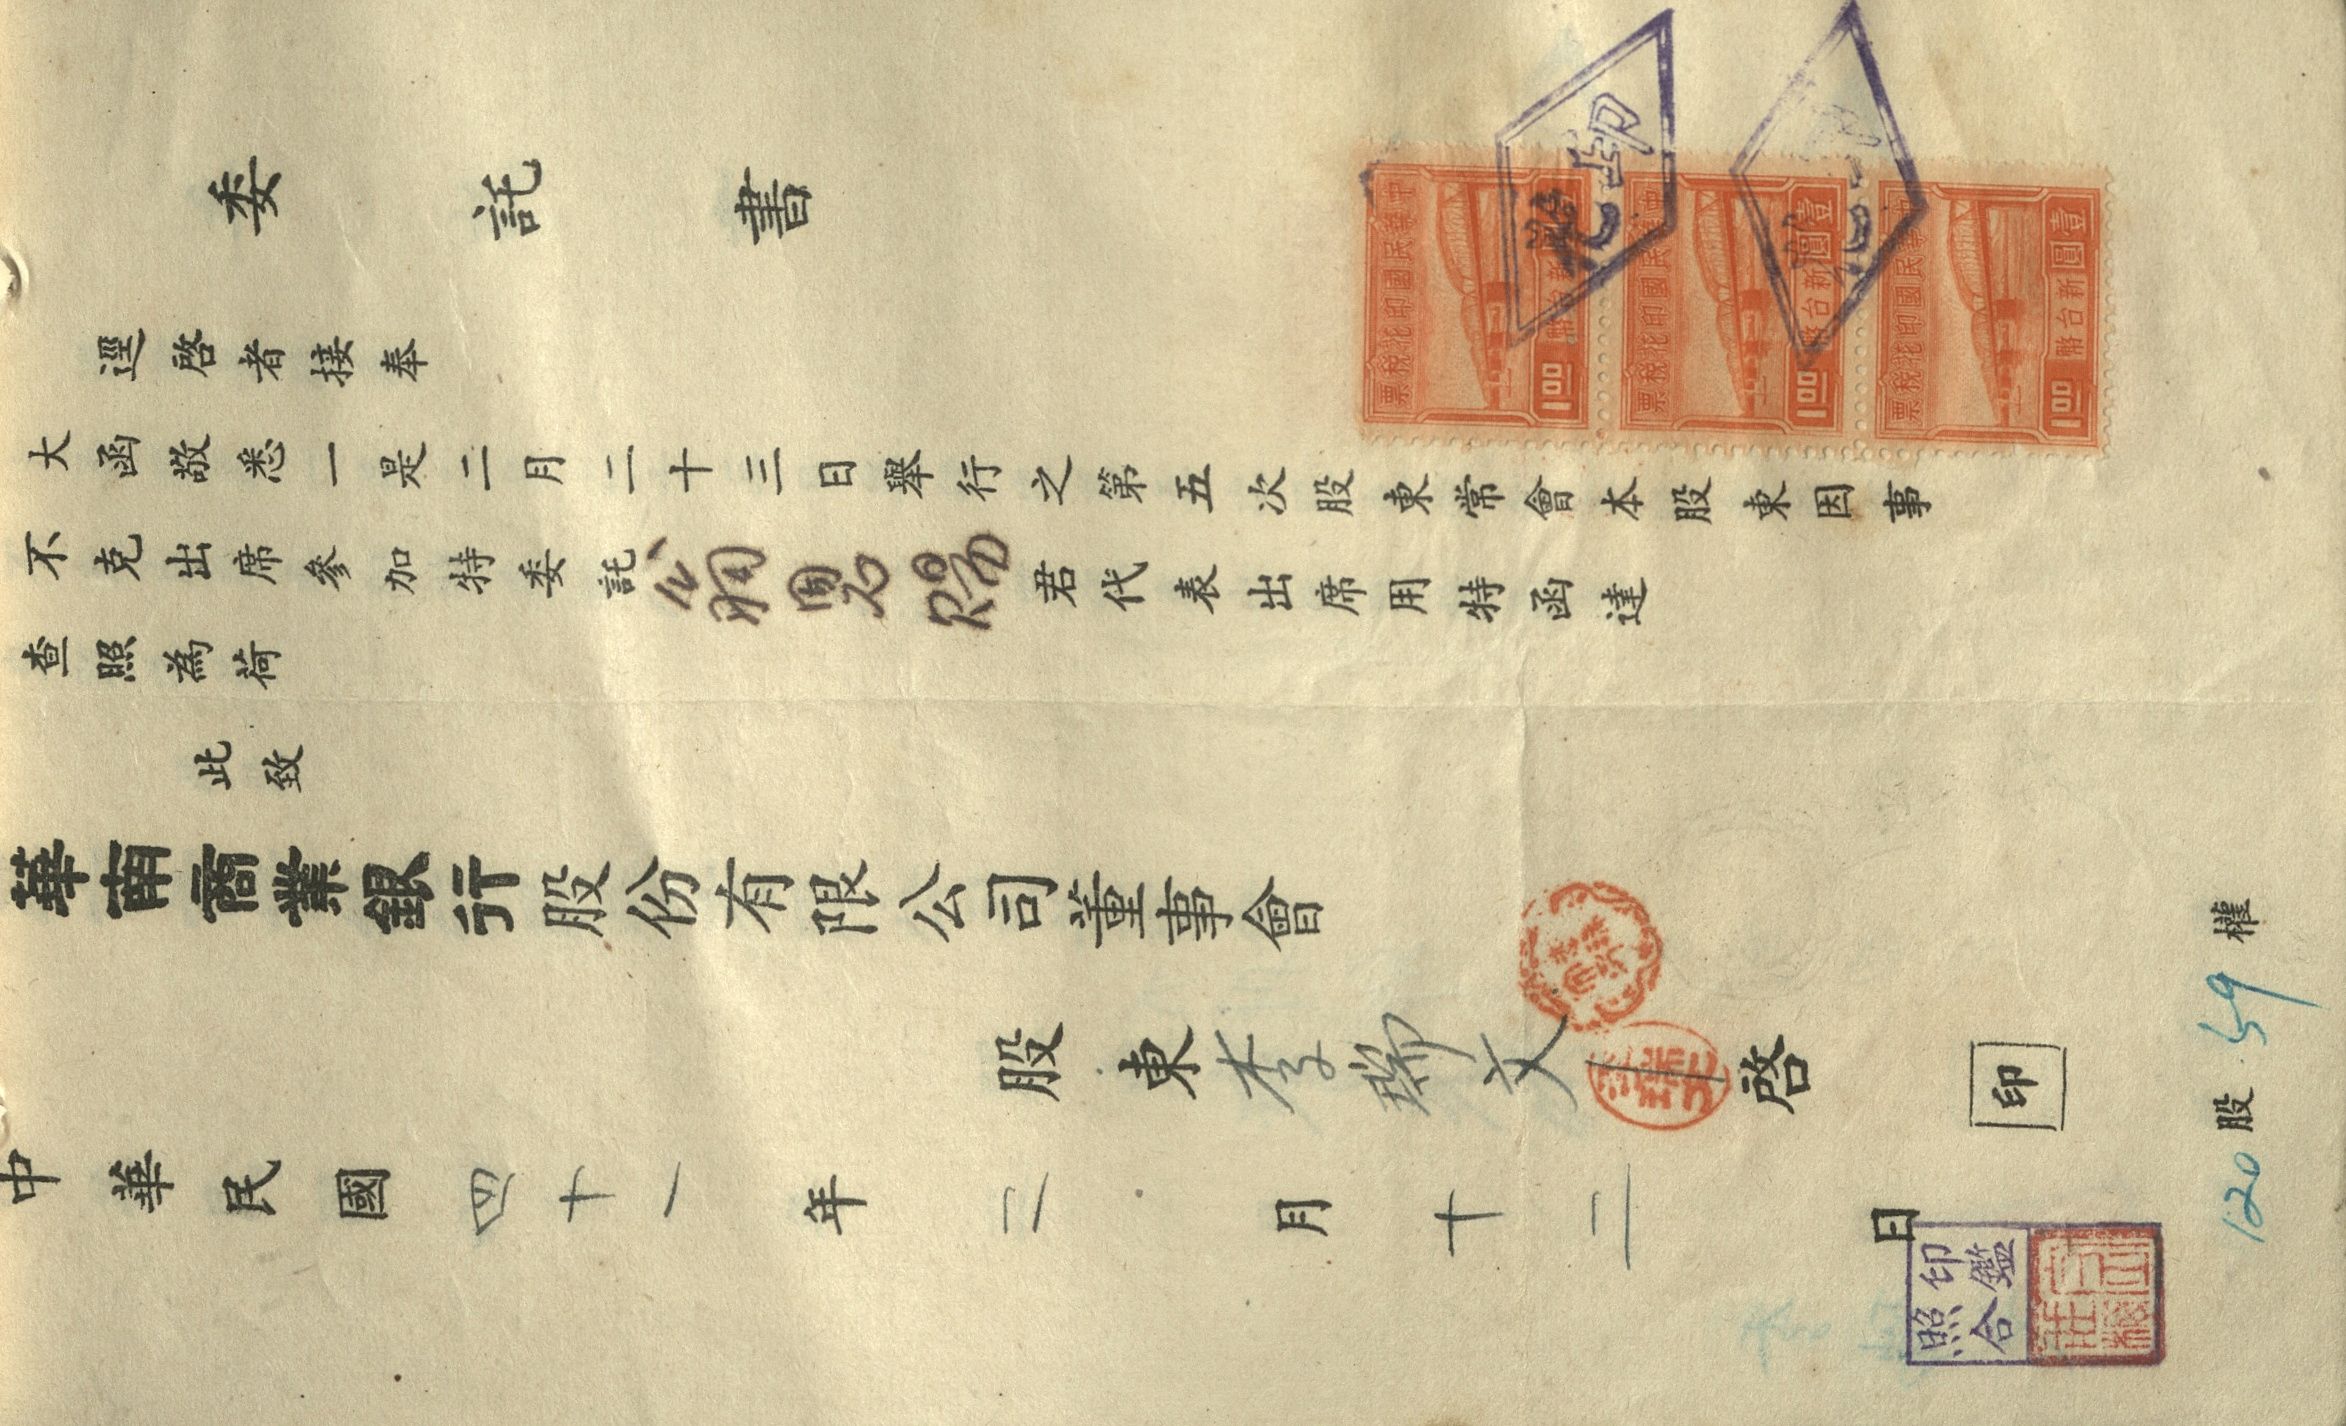 委託書
逕啓者接奉
大函敬悉一是二月二十三日舉行之第五次股東常會本股東因事
不克出席參加特委託翁君賜君代表出席用特函達
查照為荷
此致
華南商業銀行股份有限公司董事會
股東李聯文啓
印
中華民國四十一年二月十二日
120股59權
中華民國印花稅票
新台幣壹圓
1.00
中華民國印花稅票
新台幣壹圓
1.00
中華民國印花稅票
新台幣壹圓
1.00
印鑑
照合